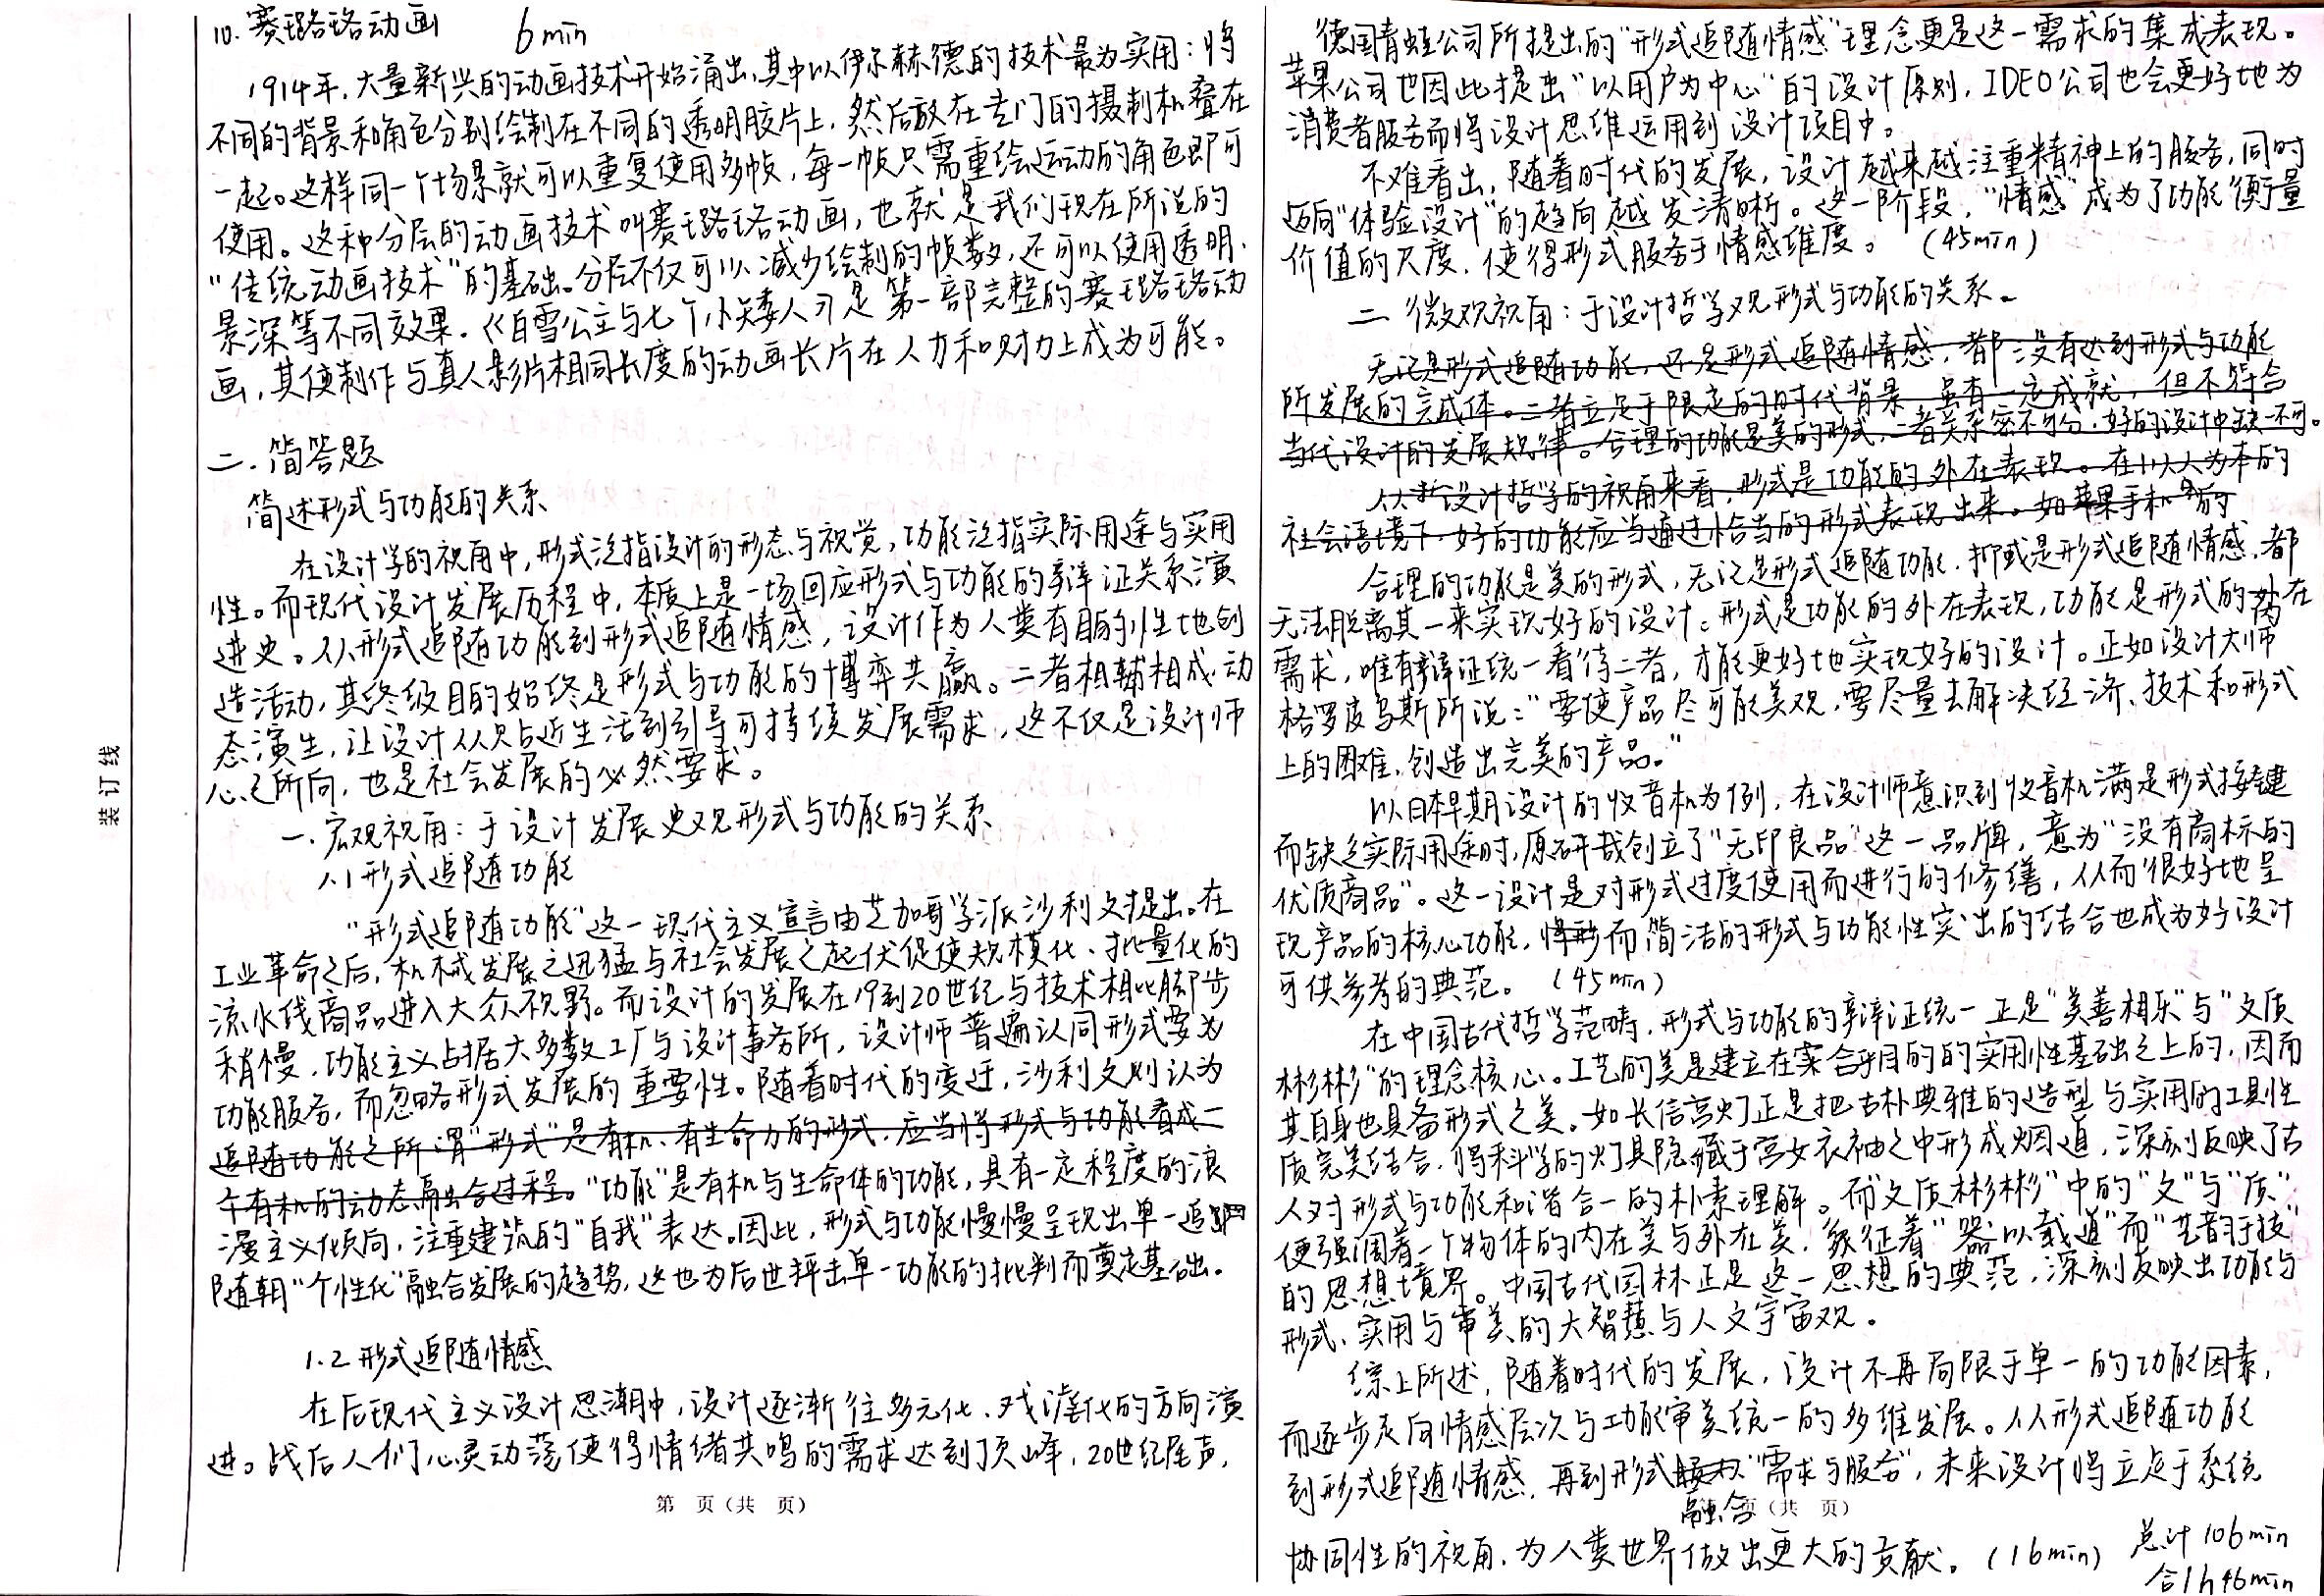 10. 赛璐珞动画 6min
1914年,大量新兴的动画技术开始涌出,其中以伊尔赫德的技术最为实用:将
不同的背景和角色分别绘制在不同的透明胶片上,然后放在专门的摄制机叠在
一起。这样同一个场景就可以重复使用多帧,每一帧只需重绘运动的角色即可
使用。这种分层的动画技术叫赛璐珞动画,也就是我们现在所说的
“传统动画技术”的基础。分层不仅可以减少绘制的帧数,还可以使用透明、
景深等不同效果。《白雪公主与七个小矮人》是第一部完整的赛璐珞动
画,其使制作与真人影片相同长度的动画长片在人力和财力上成为可能。
二.简答题
简述形式与功能的关系
在设计学的视角中,形式泛指设计的形态与视觉,功能泛指实际用途与实用
性。而现代设计发展历程中,本质上是一场回应形式与功能的辩证关系演
进史。从形式追随功能到形式追随情感,设计作为人类有目的性地创
造活动,其终级目的始终是形式与功能的博弈共赢。二者相辅相成、动
态演生,让设计从贴近生活到引导可持续发展需求,这不仅是设计师
心之所向,也是社会发展的必然要求。
一.宏观视角:于设计发展史观形式与功能的关系
1.1形式追随功能
“形式追随功能”这一现代主义宣言由芝加哥学派沙利文提出。在
工业革命之后,机械发展之迅猛与社会发展之起伏促使规模化、批量化的
流水线商品进入大众视野。而设计的发展在19到20世纪与技术相比脚步
稍慢,功能主义占据大多数工厂与设计事务所,设计师普遍认同形式要为
功能服务,而忽略形式发展的重要性。随着时代的变迁,沙利文则认为
追随功能之所谓“形式”是有机、有生命力的形式,应当将形式与功能看成一
个有机的动态融合过程。“功能”是有机与生命体的功能,具有一定程度的浪
漫主义倾向,注重建筑的“自我”表达。因此,形式与功能慢慢呈现出单一追
随朝“个性化”融合发展的趋势,这也为后世抨击单一功能的批判而奠定基础。
1.2形式追随情感
在后现代主义设计思潮中,设计逐渐往多元化、戏谑化的方向演
进。战后人们心灵动荡使得情绪共鸣的需求达到了顶峰,20世纪尾声,
装订线
第 页(共 页)
德国青蛙公司所提出的“形式追随情感”理念更是这一需求的集成表现。
苹果公司也因此提出“以用户为中心”的设计原则,IDEO公司也会更好地为
消费者服务而将设计思维运用到设计项目中。
不难看出,随着时代的发展,设计越来越注重精神上的服务,同时
迈向“体验设计”的趋向越发清晰。这一阶段,“情感”成为了功能衡量
价值的尺度,使得形式服务于情感维度。 (45min)
二 微观视角:于设计哲学观形式与功能的关系。
无论是形式追随功能,还是形式追随情感,都没有达到形式与功能
所发展的完成体。二者立足于限定的时代背景,虽有一定成就,但不符合
当代设计的发展规律。合理的功能是美的形式,二者关系密不可分,好的设计中缺一不可。
从设计哲学的视角来看,形式是功能的外在表现。在以人为本的
社会语境下,好的功能应当通过恰当的形式表现出来。如苹果手机的
合理的功能是美的形式,无论是形式追随功能,抑或是形式追随情感,都
无法脱离其一来实现好的设计。形式是功能的外在表现,功能是形式的内在
需求,唯有辩证统一看待二者,才能更好地实现好的设计。正如设计大师
格罗皮乌斯所说:“要使产品尽可能美观,要尽量去解决经济、技术和形式
上的困难,创造出完美的产品。”
以日本早期设计的收音机为例,在设计师意识到收音机满是形式按键
而缺乏实际用途时,原研哉创立了“无印良品”这一品牌,意为“没有商标的
优质商品”。这一设计是对形式过度使用而进行的修缮,从而很好地呈
现产品的核心功能,将形而简洁的形式与功能性突出的结合也成为好设计
可供参考的典范。 (45min)
在中国古代哲学范畴,形式与功能的辩证统一正是“美善相乐”与“文质
彬彬”的理念核心。工艺的美是建立在合乎目的的实用性基础之上的,因而
其自身也具备形式之美。如长信宫灯正是把古朴典雅的造型与实用的工具性
质完美结合,将科学的灯具隐藏于宫女衣袖之中形成烟道,深刻反映了古
人对形式与功能和谐合一的朴素理解。而“文质彬彬”中的“文”与“质”
便强调着一个物体的内在美与外在美,象征着“器以载道”而“艺韵于技”
的思想境界。中国古代园林正是这一思想的典范,深刻反映出功能与
形式、实用与审美的大智慧与人文宇宙观。
综上所述,随着时代的发展,设计不再局限于单一的功能因素,
而逐步走向情感层次与功能审美统一的多维发展。从形式追随功能
到形式追随情感,再到形式融合“需求与服务”,未来设计将立足于系统
页(共 页)
协同性的视角,为人类世界做出更大的贡献。(16min) 总计106min
合1h46min